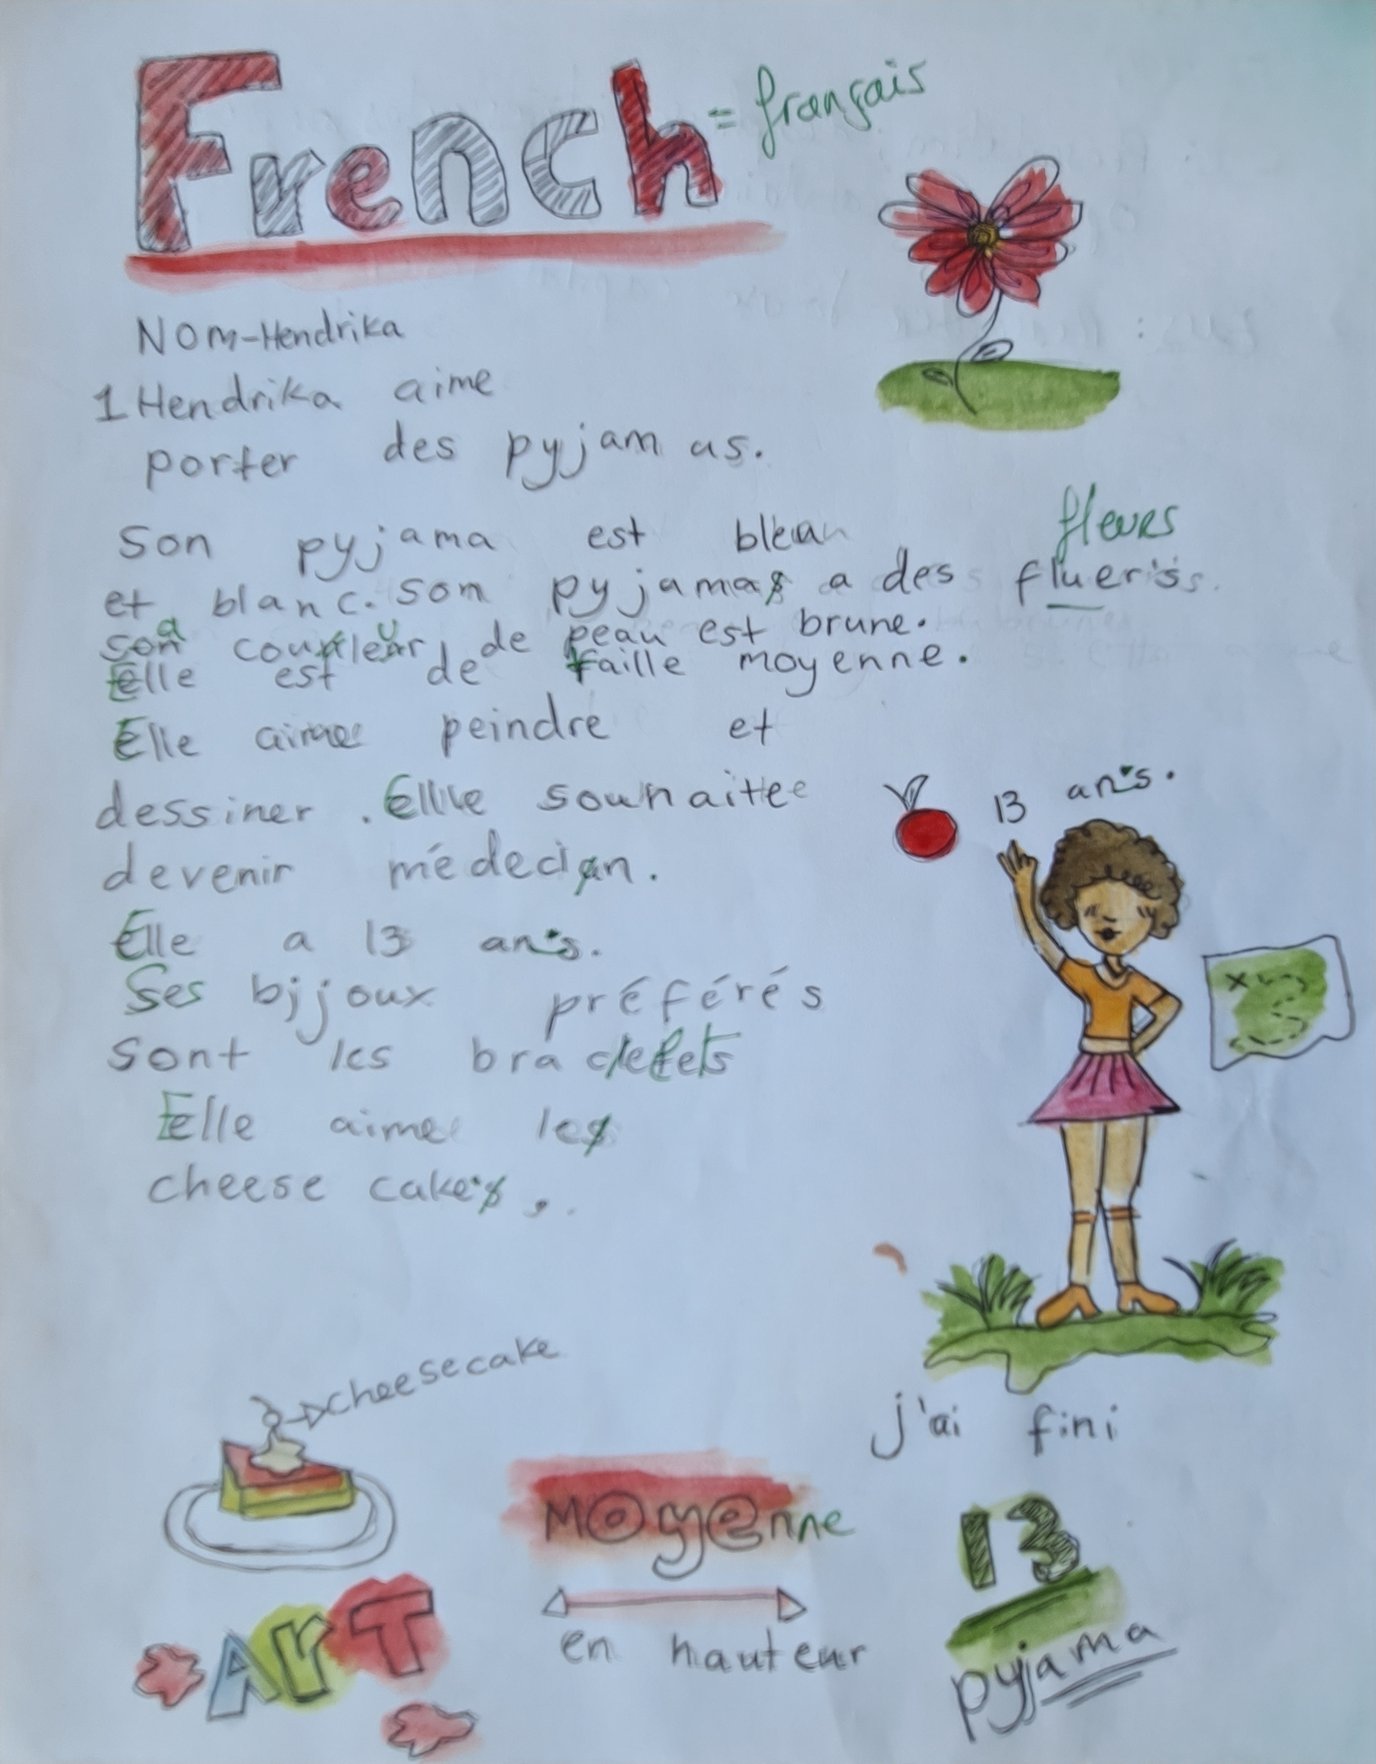 French = français
Nom-Hendrika
1 Hendrika aime
porter des pyjamas.
Son pyjama est
fleurs
et blanc. son pyjamas a des
son couleur de peau est brune.
Elle est de taille moyenne.
Elle aime peindre et
dessiner. Elle souhaite
devenir médecin.
Elle a 13 ans.
Ses bijoux préférés
sont les bracelets
Elle aime les
cheese cakes.
13 ans.
cheesecake
j'ai fini
Moyenne
en hauteur
13
pyjama
Art